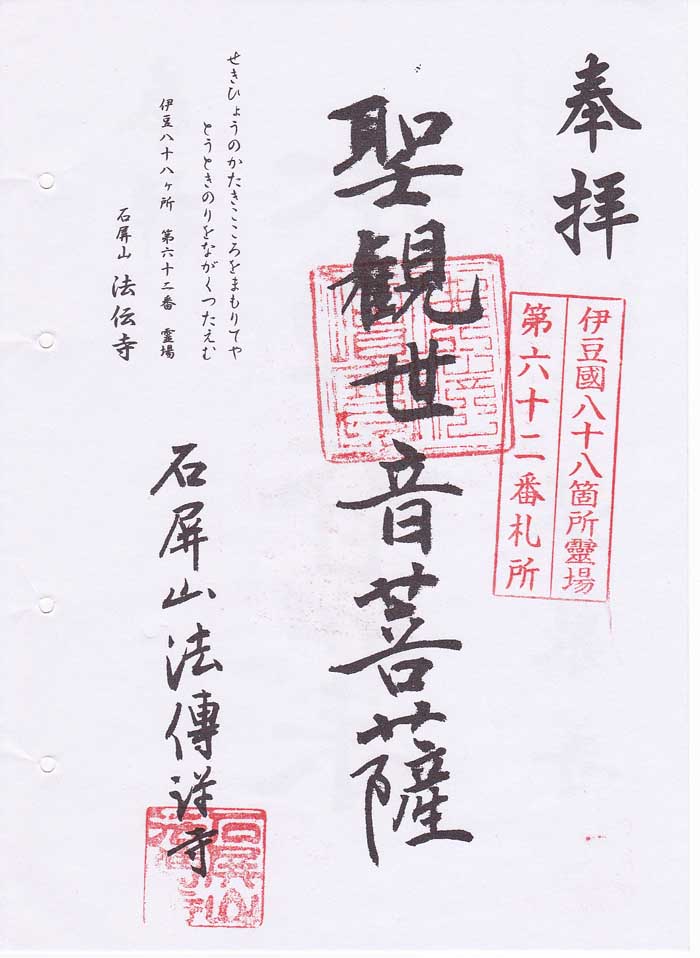 奉拝
伊豆國八十八箇所靈場
第六十二番札所
聖観世音菩薩
せきひょうのかたきこころをまもりてや
とうときのりをながくつたえむ
伊豆八十八ヶ所 第六十二番 霊場
石屏山 法伝寺
石屏山法傳禅寺
石屏山